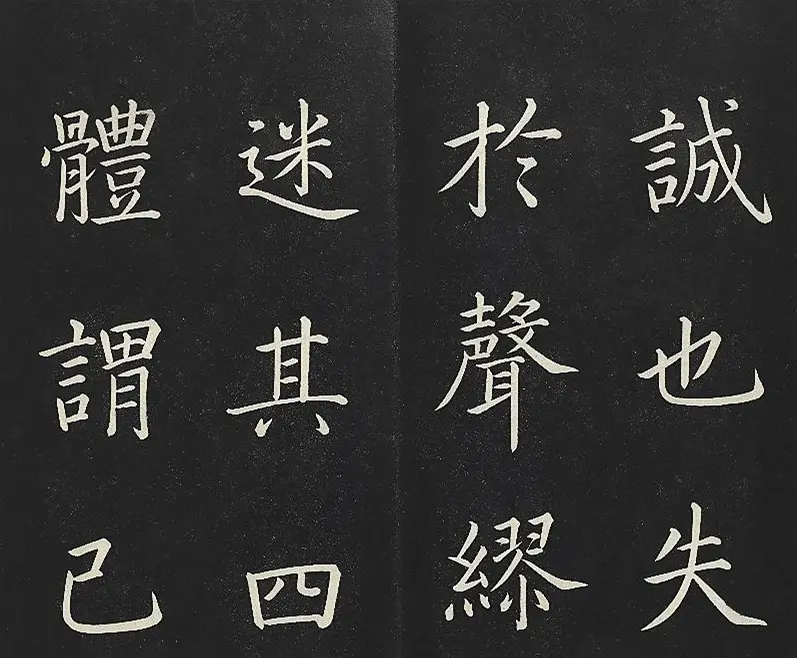 誠也失
於聲繆
迷其四
體謂己